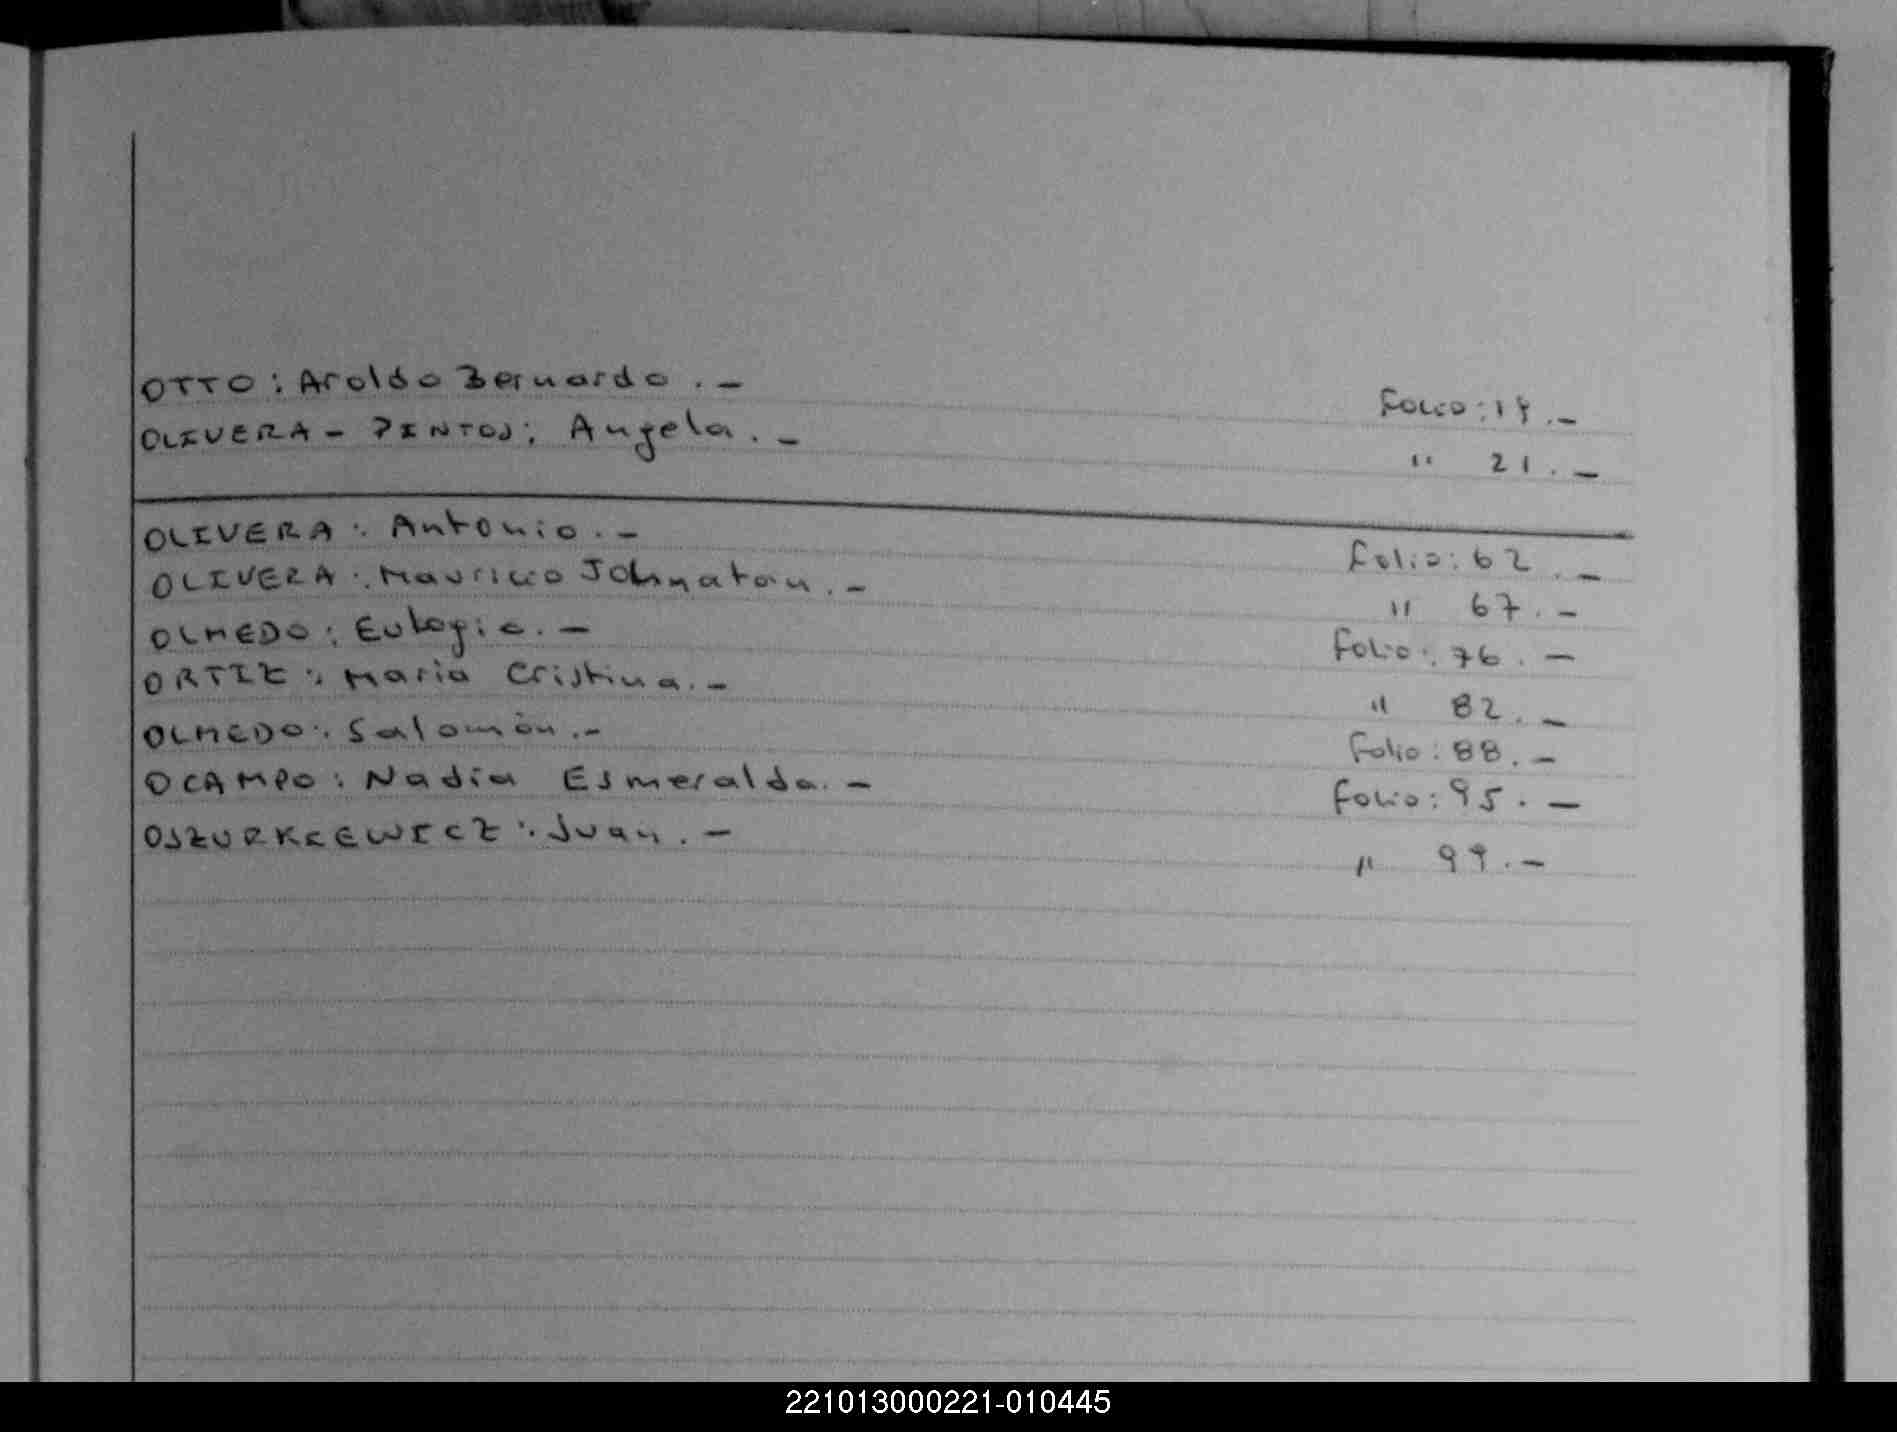 OTTO: Aroldo Bernardo.- Folio: 19.-
OLIVERA - PINTOS: Angela.- " 21.-
OLIVERA: Antonio.- Folio: 62.-
OLIVERA: Mauricio Johnatan.- " 67.-
OLMEDO: Eulogio.- Folio: 76.-
ORTIZ: Maria Cristina.- " 82.-
OLMEDO: Salomón.- Folio: 88.-
OCAMPO: Nadia Esmeralda.- Folio: 95.-
OSZURKIEWICZ: Juan.- " 99.-
221013000221-010445